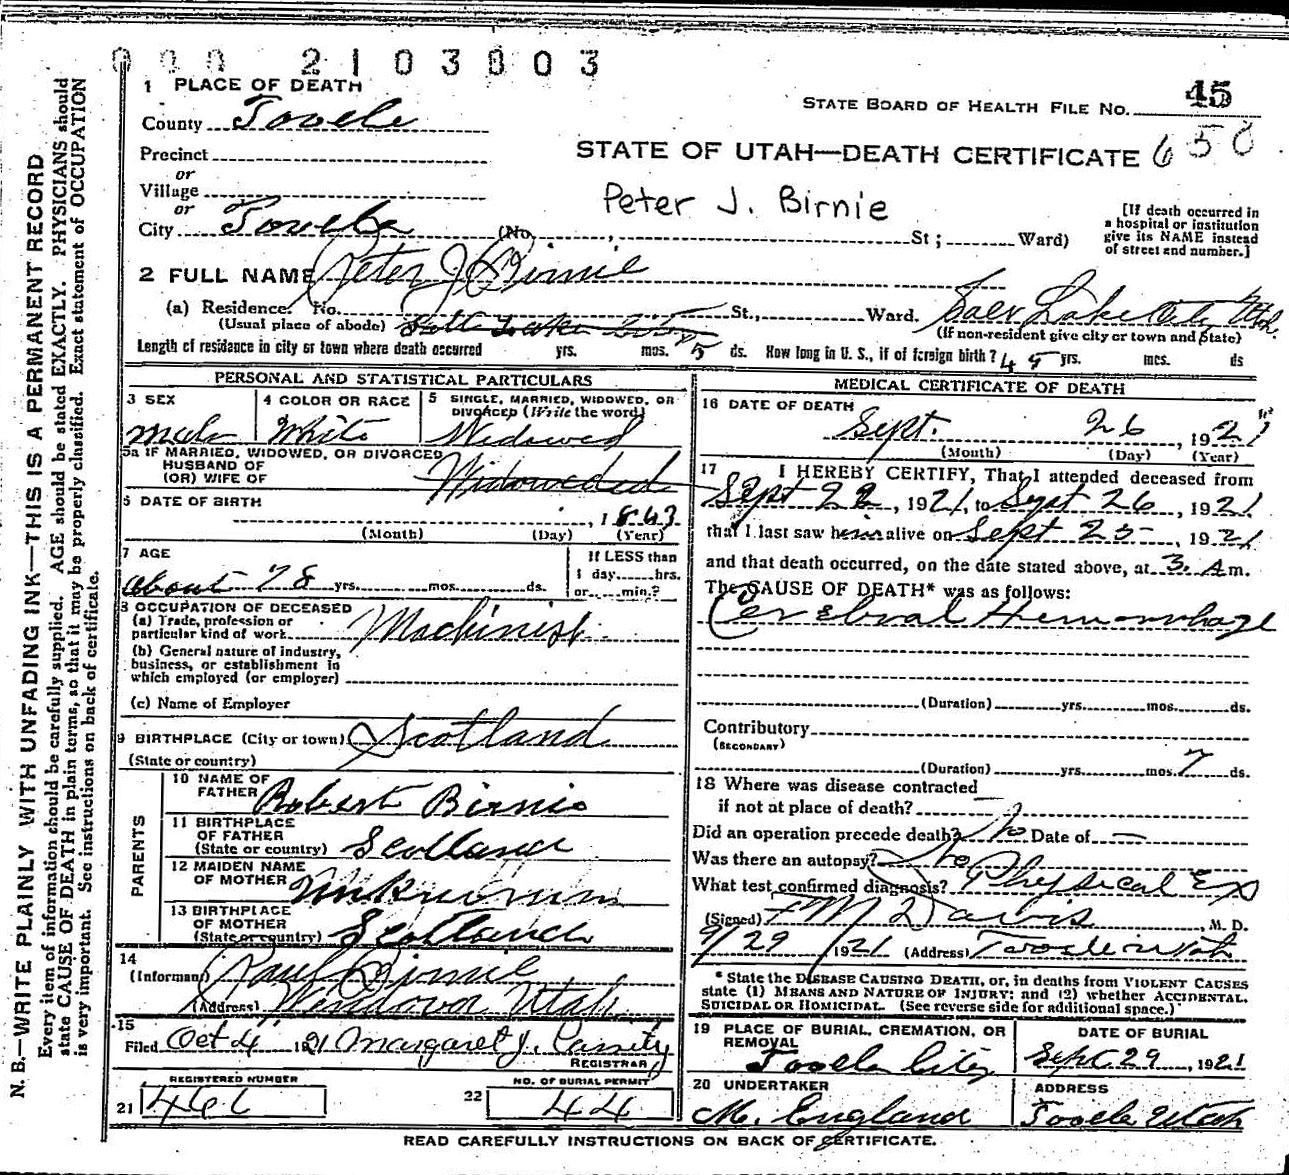 000 2103803
45
STATE BOARD OF HEALTH FILE No.
STATE OF UTAH—DEATH CERTIFICATE 650
Peter J. Birnie
1 PLACE OF DEATH
County Tooele
Precinct
or
Village
or
City Tooele (No. , St; Ward)
[If death occurred in
a hospital or institution
give its NAME instead
of street and number.]
2 FULL NAME Peter J Birnie
(a) Residence. No. St., Ward. Salt Lake City Utah
(Usual place of abode) Salt Lake City (If non-resident give city or town and State)
Length of residence in city or town where death occurred yrs. mos. 5 ds. How long in U. S., if of foreign birth? 49 yrs. mos. ds
PERSONAL AND STATISTICAL PARTICULARS
3 SEX
male
4 COLOR OR RACE
White
5 SINGLE, MARRIED, WIDOWED, OR
DIVORCED (Write the word)
Widowed
5a IF MARRIED, WIDOWED, OR DIVORCED
HUSBAND OF
(OR) WIFE OF Widoweded
6 DATE OF BIRTH
, 1843
(Month) (Day) (Year)
7 AGE
about 78 yrs. mos. ds.
If LESS than
1 day......hrs.
or......min.?
8 OCCUPATION OF DECEASED
(a) Trade, profession or
particular kind of work Machinist
(b) General nature of industry,
business, or establishment in
which employed (or employer)
(c) Name of Employer
9 BIRTHPLACE (City or town) Scotland
(State or country)
PARENTS
10 NAME OF
FATHER Robert Birnie
11 BIRTHPLACE
OF FATHER
(State or country) Scotland
12 MAIDEN NAME
OF MOTHER Unknown
13 BIRTHPLACE
OF MOTHER
(State or country) Scotland
14
(Informant) Paul Birnie
(Address) Wendover Utah
15
Filed Oct 4 1921 Margaret J. Cassity
REGISTRAR
REGISTERED NUMBER
21 461
NO. OF BURIAL PERMIT
22 44
MEDICAL CERTIFICATE OF DEATH
16 DATE OF DEATH
Sept. 26, 1921
(Month) (Day) (Year)
17 I HEREBY CERTIFY, That I attended deceased from
Sept 22, 1921, to Sept 26, 1921
that I last saw him alive on Sept 25, 1921
and that death occurred, on the date stated above, at 3. A m.
The CAUSE OF DEATH* was as follows:
Cerebral Hemorrhage
(Duration) yrs. mos. ds.
Contributory
(SECONDARY)
(Duration) yrs. mos. 7 ds.
18 Where was disease contracted
if not at place of death? ?
Did an operation precede death? No Date of —
Was there an autopsy? No
What test confirmed diagnosis? Physical Ex
(Signed) F M Davis, M. D.
9/29, 1921 (Address) Tooele Utah
* State the DISEASE CAUSING DEATH, or, in deaths from VIOLENT CAUSES
state (1) MEANS AND NATURE OF INJURY: and (2) whether ACCIDENTAL.
SUICIDAL OR HOMICIDAL. (See reverse side for additional space.)
19 PLACE OF BURIAL, CREMATION, OR
REMOVAL
Tooele City
DATE OF BURIAL
Sept 29, 1921
20 UNDERTAKER
M. England
ADDRESS
Tooele Utah
READ CAREFULLY INSTRUCTIONS ON BACK OF CERTIFICATE.
N. B.—WRITE PLAINLY WITH UNFADING INK—THIS IS A PERMANENT RECORD
Every item of information should be carefully supplied. AGE should be stated EXACTLY. PHYSICIANS should
state CAUSE OF DEATH in plain terms, so that it may be properly classified. Exact statement of OCCUPATION
is very important. See instructions on back of certificate.